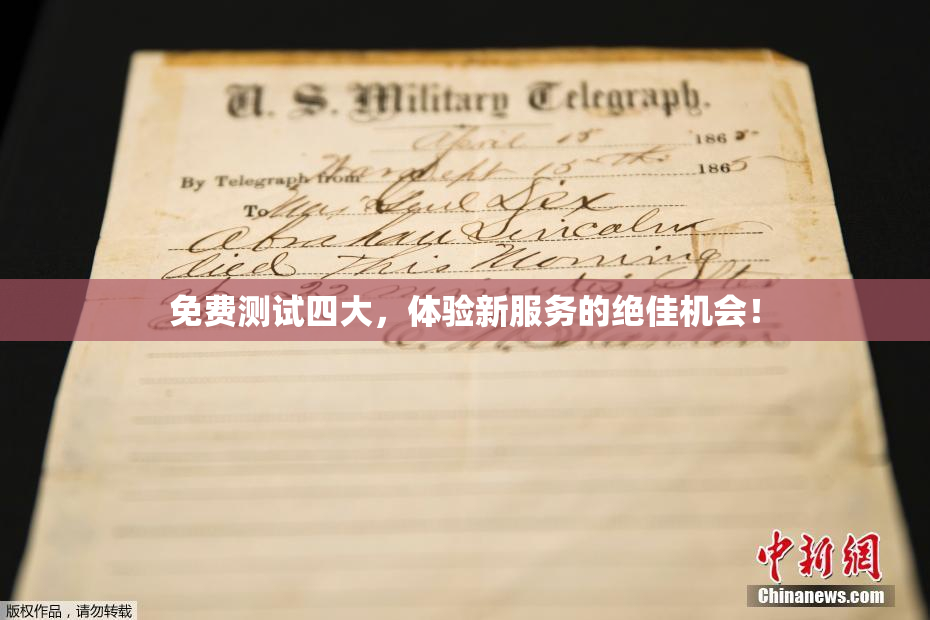 U. S. Military Telegraph.
April 15 1865
By Telegraph from War Dept 15th 1865
To Maj Genl Dix
Abraham Lincoln
died This Morning
at 22 minutes after
免费测试四大，体验新服务的绝佳机会！
E. M. Stanton
中新网
Chinanews.com
版权作品，请勿转载